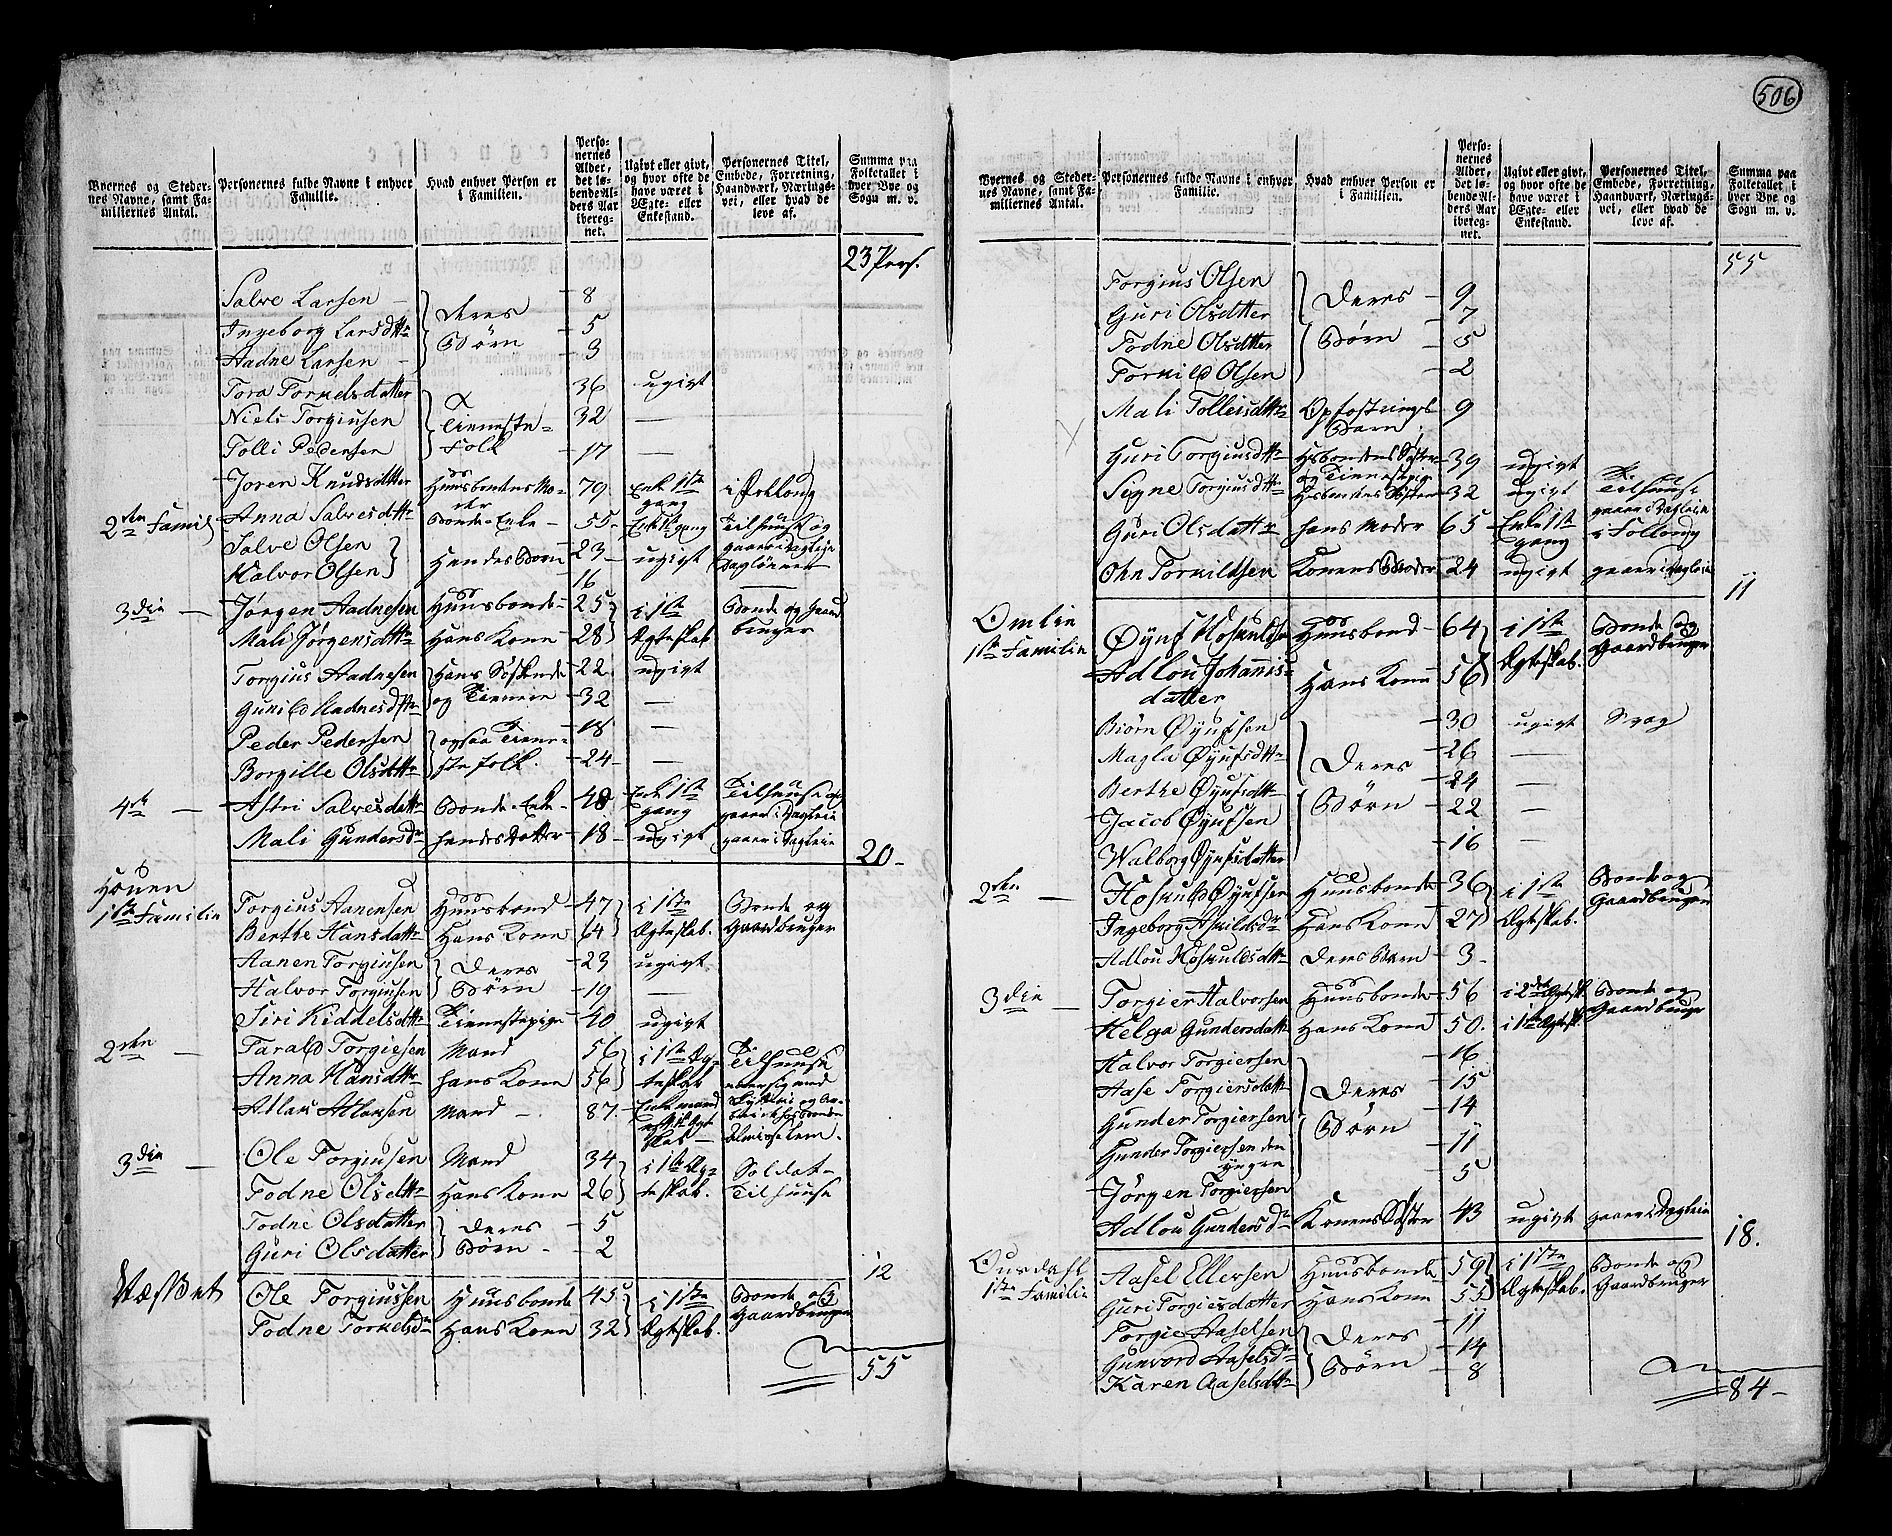 506
Byernes og Steder-
nes Navne, samt Fa-
miliernes Antal.
Personernes fulde Navne i enhver
Familie.
Hvad enhver Person er
i Familien.
Perso-
nernes
Alder,
det lø-
bende Al-
ders Aar
ibereg-
net.
Ugivt eller givt,
og hvor ofte de
have været i
Ægte- eller
Enkestand.
Personernes Titel,
Embede, Forretning,
Haandværk, Nærings-
vei, eller hvad de
leve af.
Summa paa
Folketallet i
hver Bye og
Sogn m. v.
23 Pers.
Salve Larsen 8
Ingeborg Larsdttr Deres Børn 5
Aadne Larsen 3
Tora Torkelsdatter 36 ugivt
Niels Torgiusen Tienneste- 32 —
Tolli Pedersen Folk 17 —
Joren Knudsdatter Huusbondens Mo-
der 79 Enke 1ste
gang i Follong
2den Famil Anna Salvesdttr Bonde-Enke 55 Enke 1 gang Tilhuusе og
Salve Olsen 23 ugivt gaaer i Dagleie
Halvor Olsen Hendes Børn 16 Daglønner
3die — Jørgen Aadnesen Huusbonde 25 i 1ste Bonde og Gaard
Mali Jørgensdttr Hans Kone 28 Ægteskab bruger
Torgius Aadnesen Hans Søskende 22 ugivt
Gunild Aadnesdttr og Tienere 32 —
Peder Pedersen ogsaa Tiene- 18 —
Borgille Olsdttr ste folk. 24 —
4de — Astri Salvesdattr Bonde-Enke 48 Enke 1ste
gang Tilhuuse og
gaaer i Dagleie
Mali Gundersdr hendes Datter 18 ugivt gaaer i Dagleie
20
Houen
1ste Familie Torgius Aanensen Huusbond 47 i 1ste Bonde og
Berthe Hansdattr Hans Kone 64 Ægteskab. Gaardbruger
Aanen Torgiusen Deres 23 ugivt
Halvor Torgiusen Børn 19 —
Siri Kiddelsdttr Tienestepige 40 ugivt
2den — Tarald Torgiesen Mand 56 i 1ste Æg- Tilhuuse
Anna Hansdttr hans Kone 56 teskab
Atlas Atlassen Mand 87 Enkemand
Almisselem
3die — Ole Torgiusen Mand 34 i 1ste Æg- Soldat
Todne Olsdttr Hans Kone 26 teskab. Tilhuuse
Todne Olsdatter Deres 5
Guri Olsdatter Børn 2
12
Væsset Ole Torgiussen Huusbonde 45 i 1ste Bonde og
Todne Torkelsdr Hans Kone 32 Ægteskab. Gaardbruger
55
Byernes og Steder-
nes Navne, samt Fa-
miliernes Antal.
Personernes fulde Navne i enhver
Familie.
Hvad enhver Person er
i Familien.
Perso-
nernes
Alder,
det lø-
bende Al-
ders Aar
ibereg-
net.
Ugivt eller givt,
og hvor ofte de
have været i
Ægte- eller
Enkestand.
Personernes Titel,
Embede, Forretning,
Haandværk, Nærings-
vei, eller hvad de
leve af.
Summa paa
Folketallet i
hver Bye og
Sogn m. v.
55
Torgius Olsen 9
Guri Olsdtter Deres 7
Todne Olsdtter Børn 5
Torkild Olsen 2
Mali Tolleisdttr Opfostrings
Barn 9
Guri Torgiusdttr Hsbondens Søster
og Tienestepige 39 ugivt
Signe Torgiusdttr Hsbondens Søster 32 ugivt Tilhuuse
gaaer i Dagleie
Guri Olsdattr hans Moder 65 Enke 1ste
gang i Follong
Ohn Torkildsen Konens Broder 24 ugivt gaaer i Dagleie
11
Omlie
1ste Familie Øyuf Hoskuldsn Huusbond 64 i 1ste Bonde og
Adlou Johannis-
datter Hans Kone 56 Ægteskab. Gaardbruger
Biørn Øyufsen 30 ugivt Svag
Magla Øyufsdttr 26 —
Berthe Øyufsdttr Deres 24 —
Jacob Øyufsen Børn 22 —
Walborg Øyufsdatter 16 —
2den — Hoskuld Øyufsen Huusbonde 36 i 1ste Bonde og
Ingeborg Askildsdr Hans Kone 27 Ægteskab. Gaardbruger
Adlou Hoskuldsdttr Deres Barn 3
3die — Torgier Halvorsen Huusbonde 56 i 2det Ægtesk. Bonde og
Helga Gundersdattr Hans Kone 50 i 1ste Ægtesk. Gaardbruger
Halvor Torgiersen 16
Aase Torgiersdattr Deres 15
Gunder Torgiersen Børn 14
Gunder Torgiersen den
yngre 11
Jørgen Torgiersen 5
Adlou Gundersdr Konens Søster 43 ugivt gaaer i Dagleie
18.
Ousdahl
1ste Familie Aasel Ellevsen Huusbonde 59 i 1ste Bonde og
Guri Torgiesdatter Hans Kone 55 Ægteskab. Gaardbruger
Torgie Aaselsen 11
Gunvord Aaselsdr Deres 14
Karen Aaselsdttr Børn 8
84